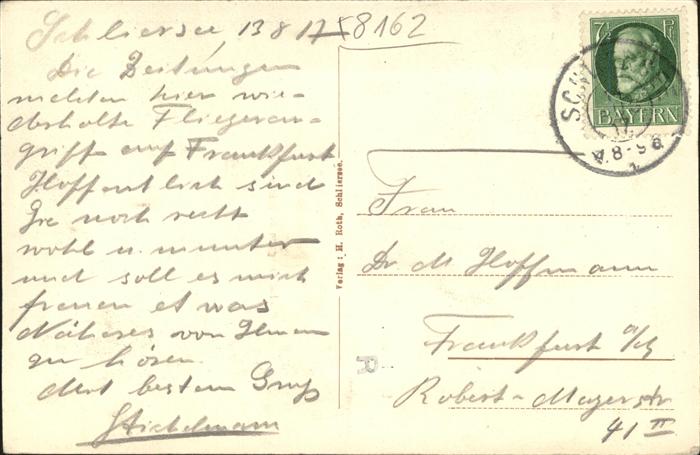 Schliersee 13 8 17
58162
Die Zeitungen
melden hier wie-
derholte Fliegeran-
griffe auf Frankfurt
Hoffentlich sind
Sie noch recht
wohl u. munter
und soll es mich
freuen etwas
Näheres von Ihnen
zu hören.
Mit bestem Gruß
Verlag: H. Roth, Schliersee.
7½ Pf
BAYERN
V.8-9
Frau
Dr M Hoffmann
Frankfurt a/M
Robert-Mayerstr
41 II
R